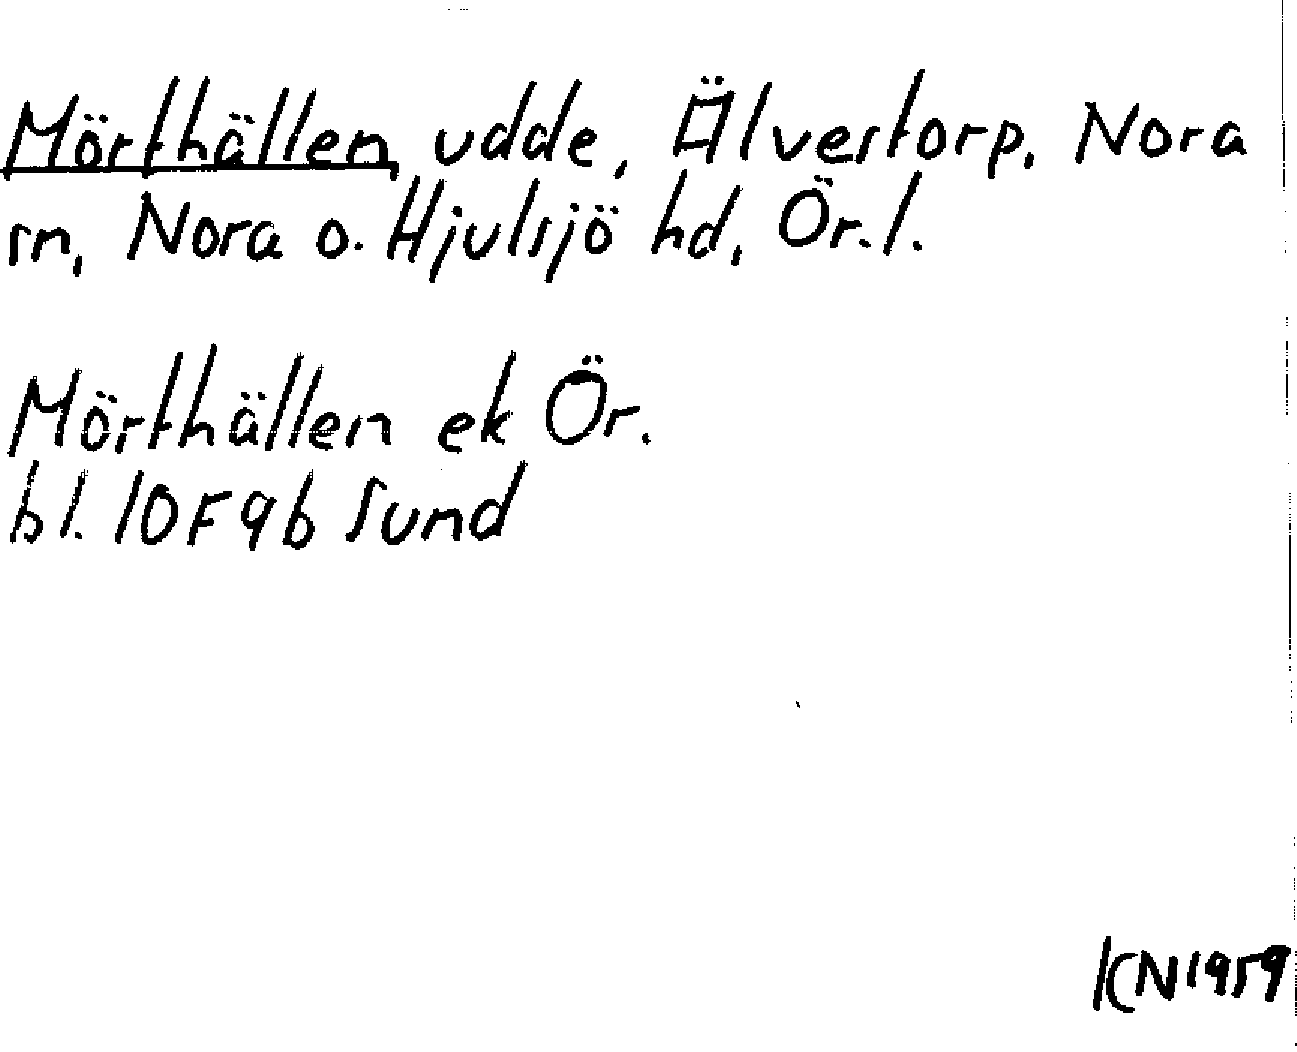 Mörthällen, udde, Älvestorp, Nora
sn, Nora o. Hjulsjö hd, Ör. l.
Mörthällen ek Ör.
bl. 10F9b Sund
KN 1959